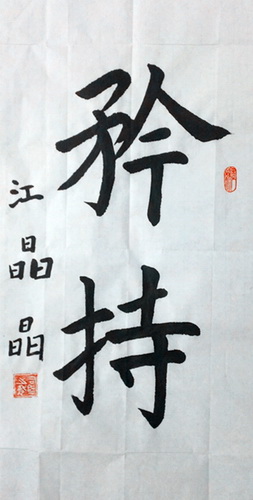 矜持
江晶晶